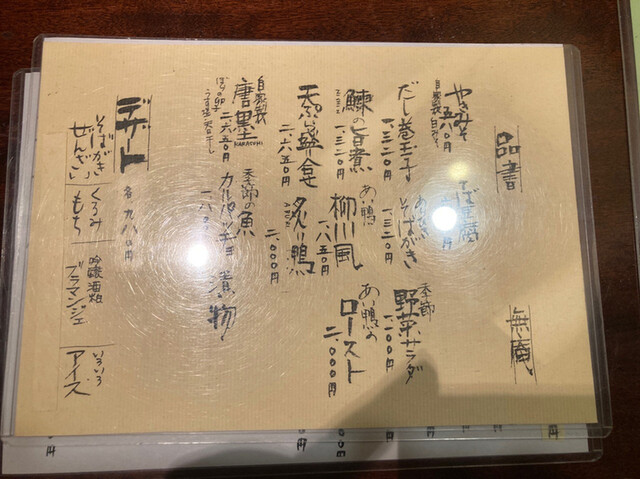 品書
無庵
やきみそ
五八〇円
そば豆腐
だし巻玉子
一、三二〇円
そばがき
一、三二〇円
季節の
野菜サラダ
一、〇〇〇円
鰊の旨煮
一、三二〇円
あい鴨
柳川風
一、六五〇円
あい鴨の
ロースト
二、〇〇〇円
天ぷら盛合せ
二、六五〇円
炙り鴨
二、〇〇〇円
自家製
唐墨
KARASUMI
二、六五〇円
ぼらの卵
季節の魚
カルパッチョ
煮物
デザート
各九八〇円
そばがき
ぜんざい
くるみ
もち
吟醸酒粕
ブラマンジェ
いろいろ
アイス